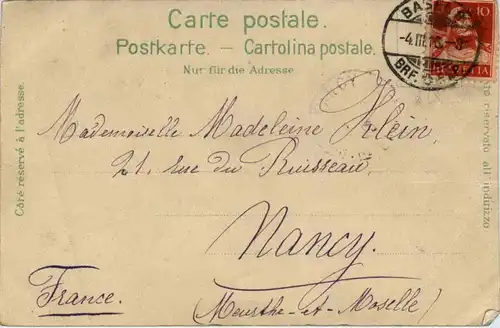 Carte postale.
Postkarte. – Cartolina postale.
Nur für die Adresse
BASEL
10
HELVETIA
Côté réservé à l'adresse.
Mademoiselle Madeleine Klein,
21. rue du Ruisseau,
Nancy.
France.
(Meurthe-et-Moselle)
lato riservato all'indirizzo